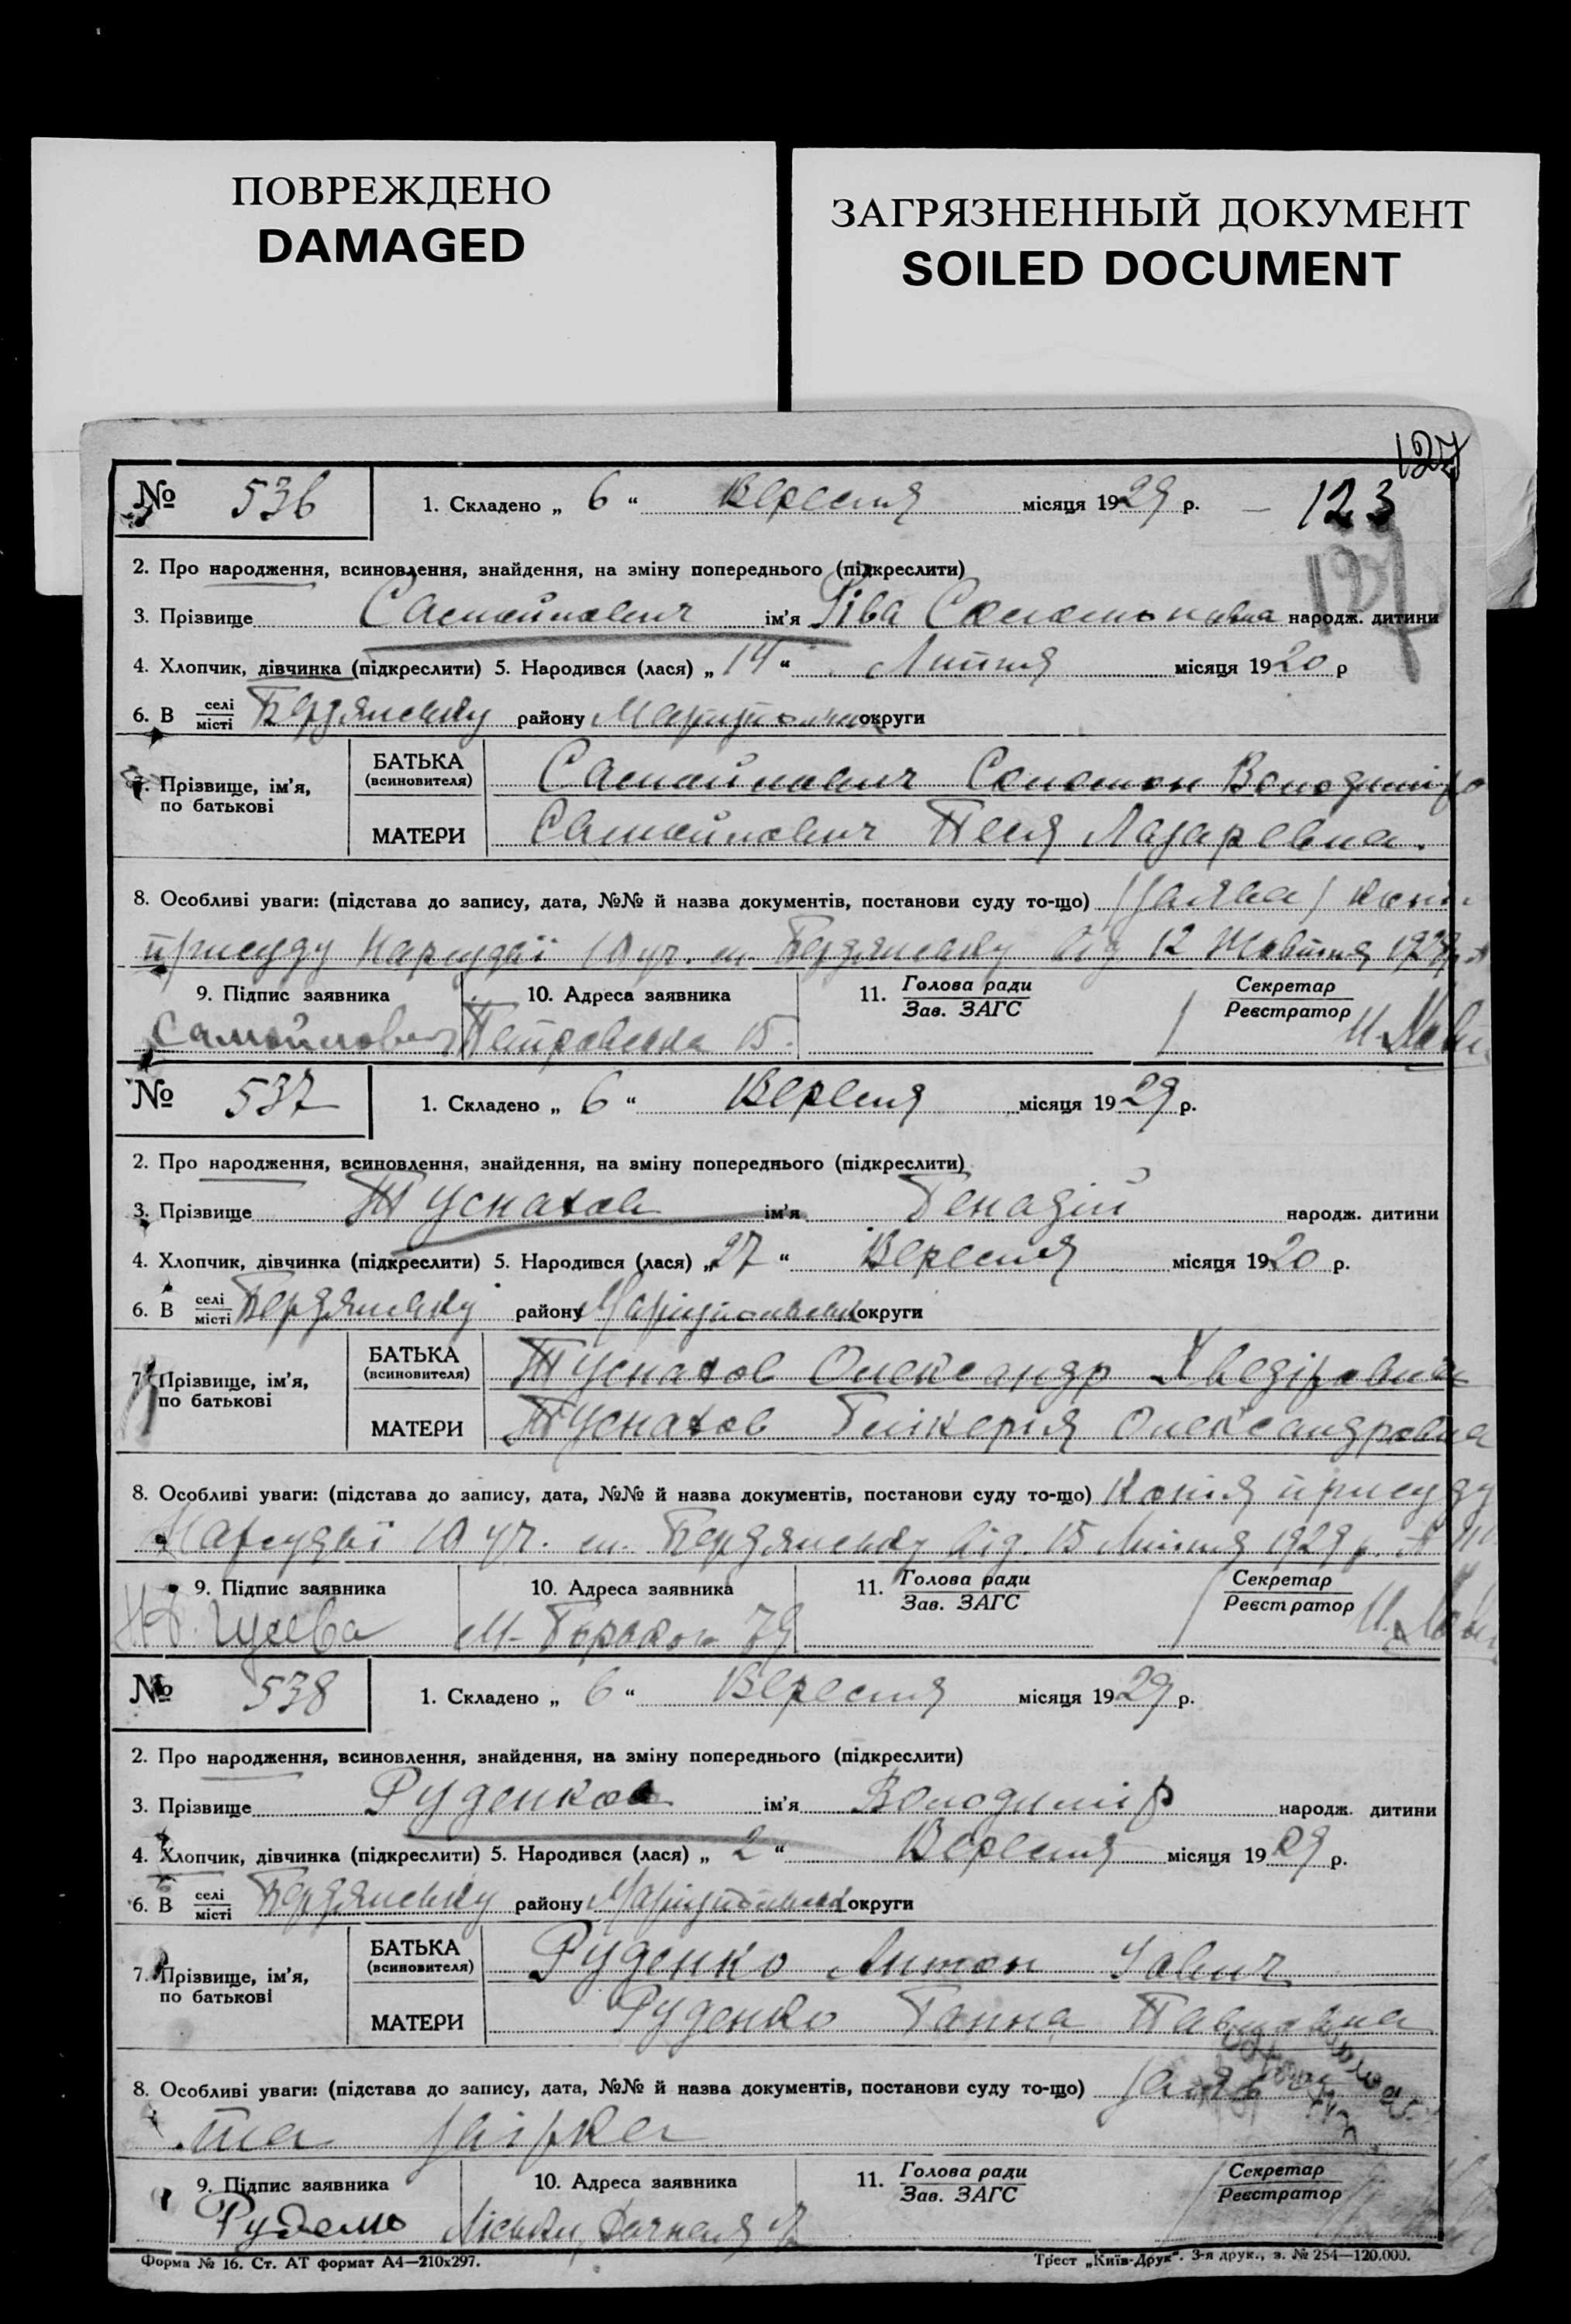 ПОВРЕЖДЕНО
DAMAGED
ЗАГРЯЗНЕННЫЙ ДОКУМЕНТ
SOILED DOCUMENT
127
№ 536 1. Складено „ 6 “ Вересня місяця 1929 р. — 123
127
2. Про народження, всиновлення, знайдення, на зміну попереднього (підкреслити)
3. Прізвище Самойлович ім’я Ріва Соломоновна народж. дитини
4. Хлопчик, дівчинка (підкреслити) 5. Народився (лася) „ 14 “ Липня місяця 1920 р
6. В селі/місті Бердянську району Маріупольськ округи
7. Прізвище, ім’я, по батькові
БАТЬКА (всиновителя) Самойлович Соломон Володиміро
МАТЕРИ Самойлович Песя Лазаревна.
8. Особливі уваги: (підстава до запису, дата, №№ й назва документів, постанови суду то-що) Заява / копія
присуду Нарсудді 10 уч. м. Бердянську від 12 Жовтня 1928р
9. Підпис заявника 10. Адреса заявника 11. Голова ради/Зав. ЗАГС Секретар/Реєстратор
Самойлович Петровська 15.
№ 537 1. Складено „ 6 “ Вересня місяця 1929 р.
2. Про народження, всиновлення, знайдення, на зміну попереднього (підкреслити)
3. Прізвище Туснахов ім’я Генадій народж. дитини
4. Хлопчик, дівчинка (підкреслити) 5. Народився (лася) „ 27 “ Вересня місяця 1920 р.
6. В селі/місті Бердянську району Маріупольськ округи
7. Прізвище, ім’я, по батькові
БАТЬКА (всиновителя) Туснахов Олександр Хведірович
МАТЕРИ Туснахов Глікерія Олександровна
8. Особливі уваги: (підстава до запису, дата, №№ й назва документів, постанови суду то-що) Копія присуду
Нарсудді 10 уч. м. Бердянську від. 15 Липня 1929 р. №
9. Підпис заявника 10. Адреса заявника 11. Голова ради/Зав. ЗАГС Секретар/Реєстратор
Гусева 79
№ 538 1. Складено „ 6 “ Вересня місяця 1929 р.
2. Про народження, всиновлення, знайдення, на зміну попереднього (підкреслити)
3. Прізвище Руденко ім’я Володимір народж. дитини
4. Хлопчик, дівчинка (підкреслити) 5. Народився (лася) „ 2 “ Вересня місяця 1929 р.
6. В селі/місті Бердянську району Маріупольськ округи
7. Прізвище, ім’я, по батькові
БАТЬКА (всиновителя) Руденко Антон
МАТЕРИ Руденко Ганна Павловна
8. Особливі уваги: (підстава до запису, дата, №№ й назва документів, постанови суду то-що) Заява
та
9. Підпис заявника 10. Адреса заявника 11. Голова ради/Зав. ЗАГС Секретар/Реєстратор
Руденко Ліски
Форма № 16. Ст. АТ формат А4—210х297.
Трест „Київ-Друк“. 3-я друк., з. № 254—120.000.